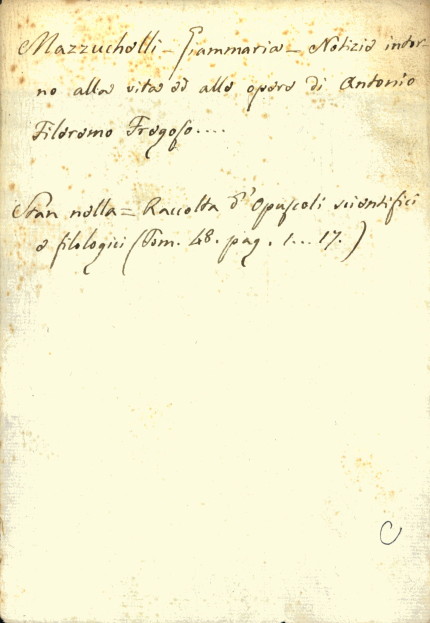 Mazzuchelli - Giammaria - Notizie intor-
no alla vita ed alle opere di Antonio
Fileremo Fregoso....
Stan nella = Raccolta d'Opuscoli scientifici
e filologici (Tom. 48. pag. 1... 17.)
C